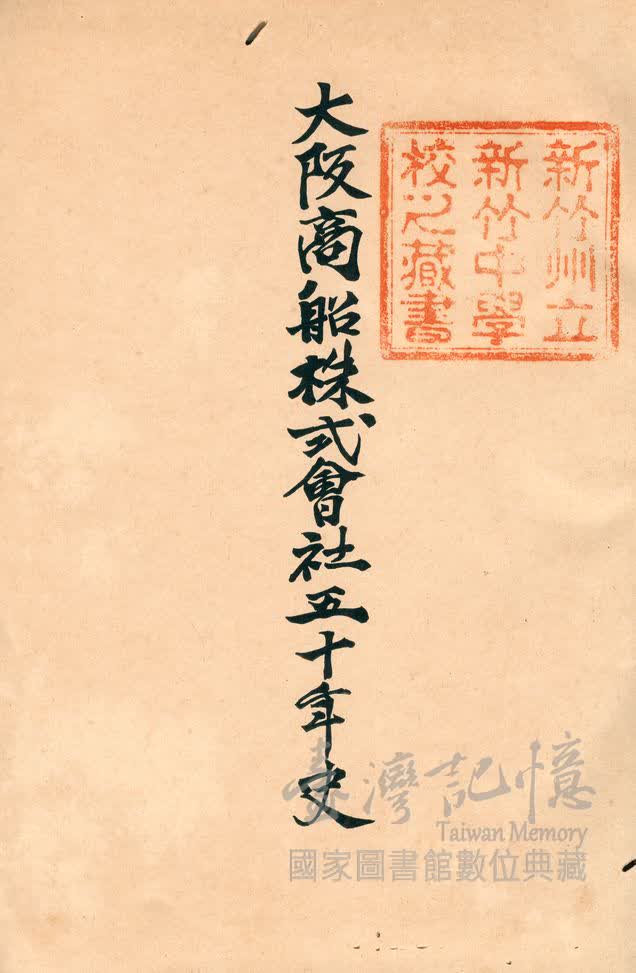 新竹州立
新竹中學
校之藏書
大阪商船株式會社五十年史
臺灣記憶
Taiwan Memory
國家圖書館數位典藏